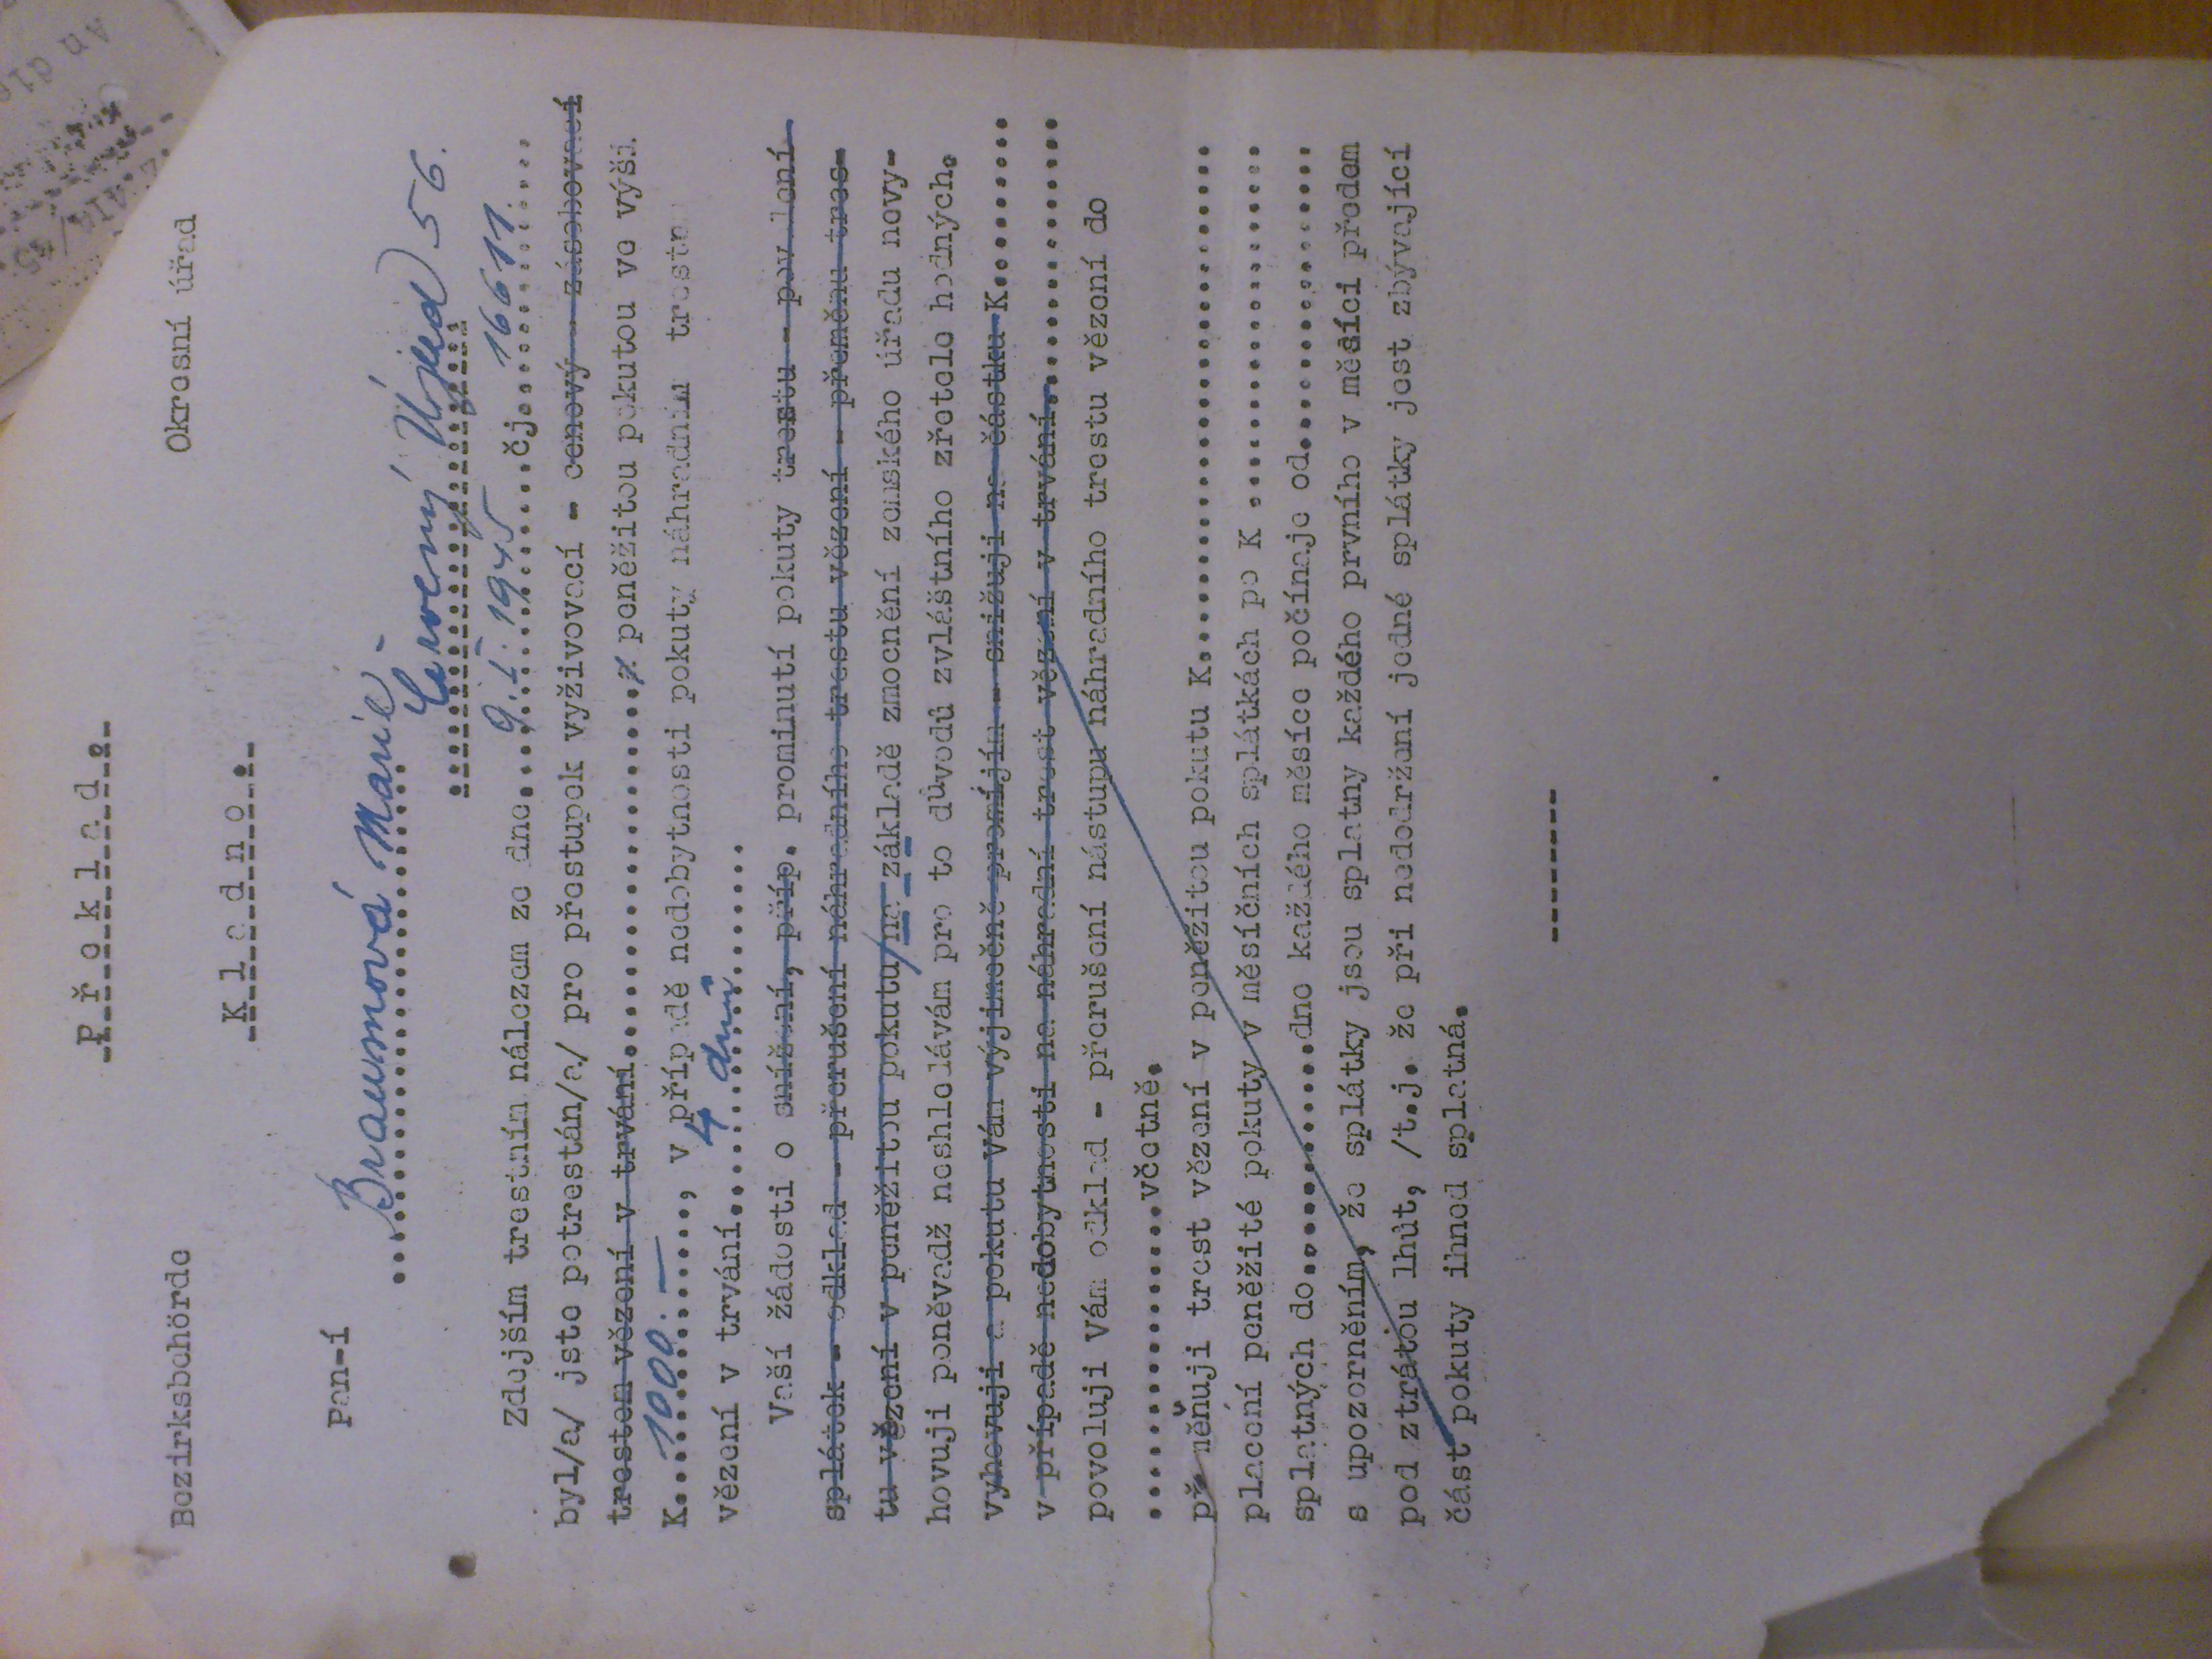 P ř e k l a d .
Bezirksbehörde Okresní úřad
K l a d n o .
Pan-í
Braumová Marie -
Červený Újezd 56.
Zdejším trestním nálezem ze dne....9.I.1945....čj....16611....
byl/a/ jste potrestán/a/ pro přestupek vyživovací - cenový - zásobovací
trestem vězení v trvání....................a peněžitou pokutou ve výši
K....1000.-...., v případě nedobytnosti pokuty náhradním trestem
vězení v trvání....4 dnů....
Vaší žádosti o snížení, příp. prominutí pokuty trestu - povolení
splátek - odklad - přerušení náhradního trestu vězení - přeměnu tres-
tu vězení v peněžitou pokutu/na základě zmocnění zemského úřadu nevy-
hovuji poněvadž neshledávám pro to důvodů zvláštního zřetele hodných.
vyhovuji a pokutu Vám výjimečně promíjím - snižuji na částku K.........
v případě nedobytnosti na náhradní trest vězení v trvání...............
povoluji Vám odklad - přerušení nástupu náhradního trestu vězení do
................včetně.
přeměňuji trest vězení v peněžitou pokutu K..........................
placení peněžité pokuty v měsíčních splátkách po K ..................
splatných do............dne každého měsíce počínaje od...............
s upozorněním, že splátky jsou splatny každého prvního v měsíci předem
pod ztrátou lhůt, /t.j. že při nedodržení jedné splátky jest zbývající
část pokuty ihned splatná.
--------